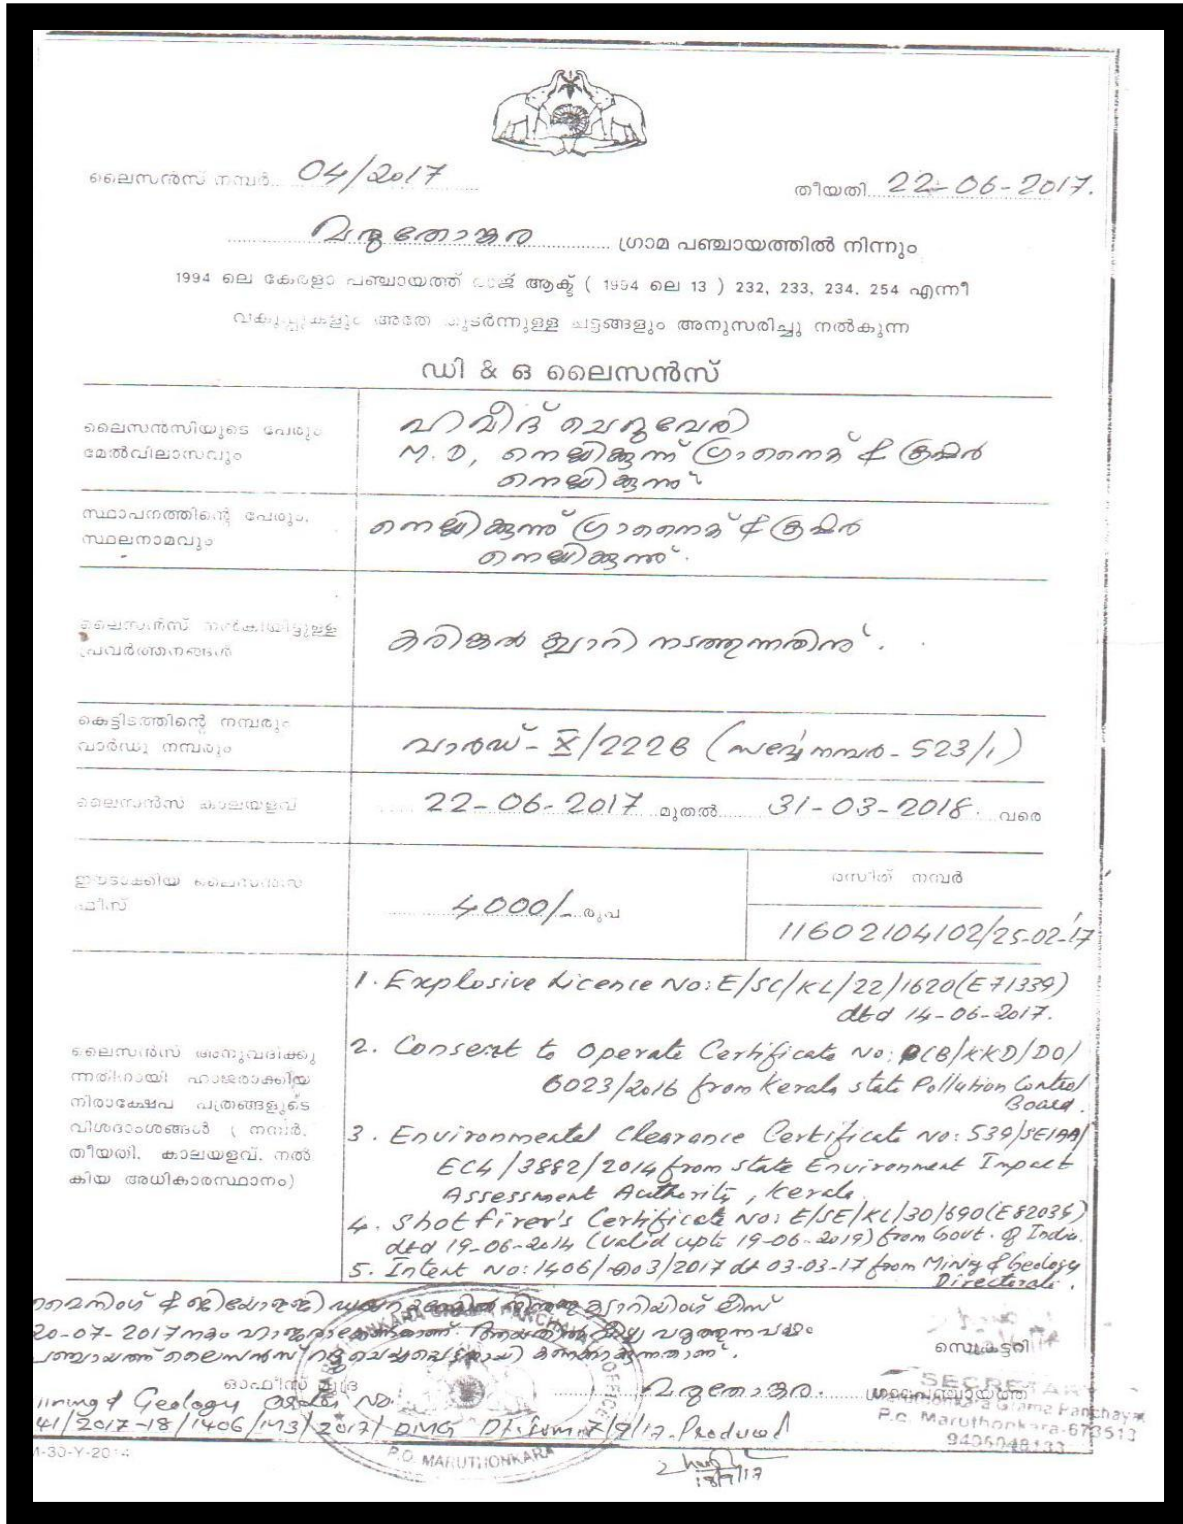 ലൈസൻസ് നമ്പർ 04/2017
തീയതി 22-06-2017.
മരുതോങ്കര ഗ്രാമ പഞ്ചായത്തിൽ നിന്നും
1994 ലെ കേരളാ പഞ്ചായത്ത് രാജ് ആക്ട് ( 1994 ലെ 13 ) 232, 233, 234, 254 എന്നീ
വകുപ്പുകളും അതേ തുടർന്നുള്ള ചട്ടങ്ങളും അനുസരിച്ചു നൽകുന്ന
ഡി & ഒ ലൈസൻസ്
ലൈസൻസിയുടെ പേരും
മേൽവിലാസവും
ഹമീദ് ചെറുവേരി
M.D, നെല്ലിക്കുന്ന് ഗ്രാനൈറ്റ് & ക്രഷർ
നെല്ലിക്കുന്ന്
സ്ഥാപനത്തിന്റെ പേരും,
സ്ഥലനാമവും
നെല്ലിക്കുന്ന് ഗ്രാനൈറ്റ് & ക്രഷർ
നെല്ലിക്കുന്ന്.
ലൈസൻസ് നൽകിയിട്ടുള്ള
പ്രവർത്തനങ്ങൾ
കരിങ്കൽ ക്വാറി നടത്തുന്നതിന്.
കെട്ടിടത്തിന്റെ നമ്പരും
വാർഡു നമ്പരും
വാർഡ് - X/222B (സർവ്വെ നമ്പർ - 523/1)
ലൈസൻസ് കാലയളവ്
22-06-2017 മുതൽ 31-03-2018. വരെ
ഈടാക്കിയ ലൈസൻസ്
ഫീസ്
4000/- രൂപ
രസീത് നമ്പർ
11602104102/25-02-17
ലൈസൻസ് അനുവദിക്കു
ന്നതിനായി ഹാജരാക്കിയ
നിരാക്ഷേപ പത്രങ്ങളുടെ
വിശദാംശങ്ങൾ ( നമ്പർ,
തീയതി, കാലയളവ്, നൽ
കിയ അധികാരസ്ഥാനം)
1. Explosive Licence No: E/SC/KL/22/1620(E71339)
dtd 14-06-2017.
2. Consent to Operate Certificate No: PCB/KKD/DO/
6023/2016 from Kerala state Pollution Control
Board.
3. Environmental Clearance Certificate No: 539/SEIAA/
EC4/3882/2014 from state Environment Impact
Assessment Authority, Kerala
4. Shotfirer's Certificate No: E/SE/KL/30/690(E82039)
dtd 19-06-2014 (valid upto 19-06-2019) from Govt. of India.
5. Intent No: 1406/എം3/2017 dt 03-03-17 from Mining & Geology
Directorate.
മൈനിംഗ് & ജിയോളജി ക്വാറിയിംഗ് ലീസ്
20-07-2017 നകം ഹാജരാക്കേണ്ടതാണ്. വീഴ്ച വരുത്തുന്ന പക്ഷം
പഞ്ചായത്ത് ലൈസൻസ് റദ്ദ് ചെയ്യപ്പെട്ടതായി കണക്കാക്കുന്നതാണ്.
സെക്രട്ടറി
ഓഫീസ് മുദ്ര
മരുതോങ്കര. ഗ്രാമപഞ്ചായത്ത്
SECRETARY
Maruthonkara Grama Panchayat
P.O. Maruthonkara-673513
Mining & Geology No.
41/2017-18/1406/M3/2017/DMG 7/9/17. Produced
P.O. MARUTHONKARA
M-30-Y-2014
18/9/17